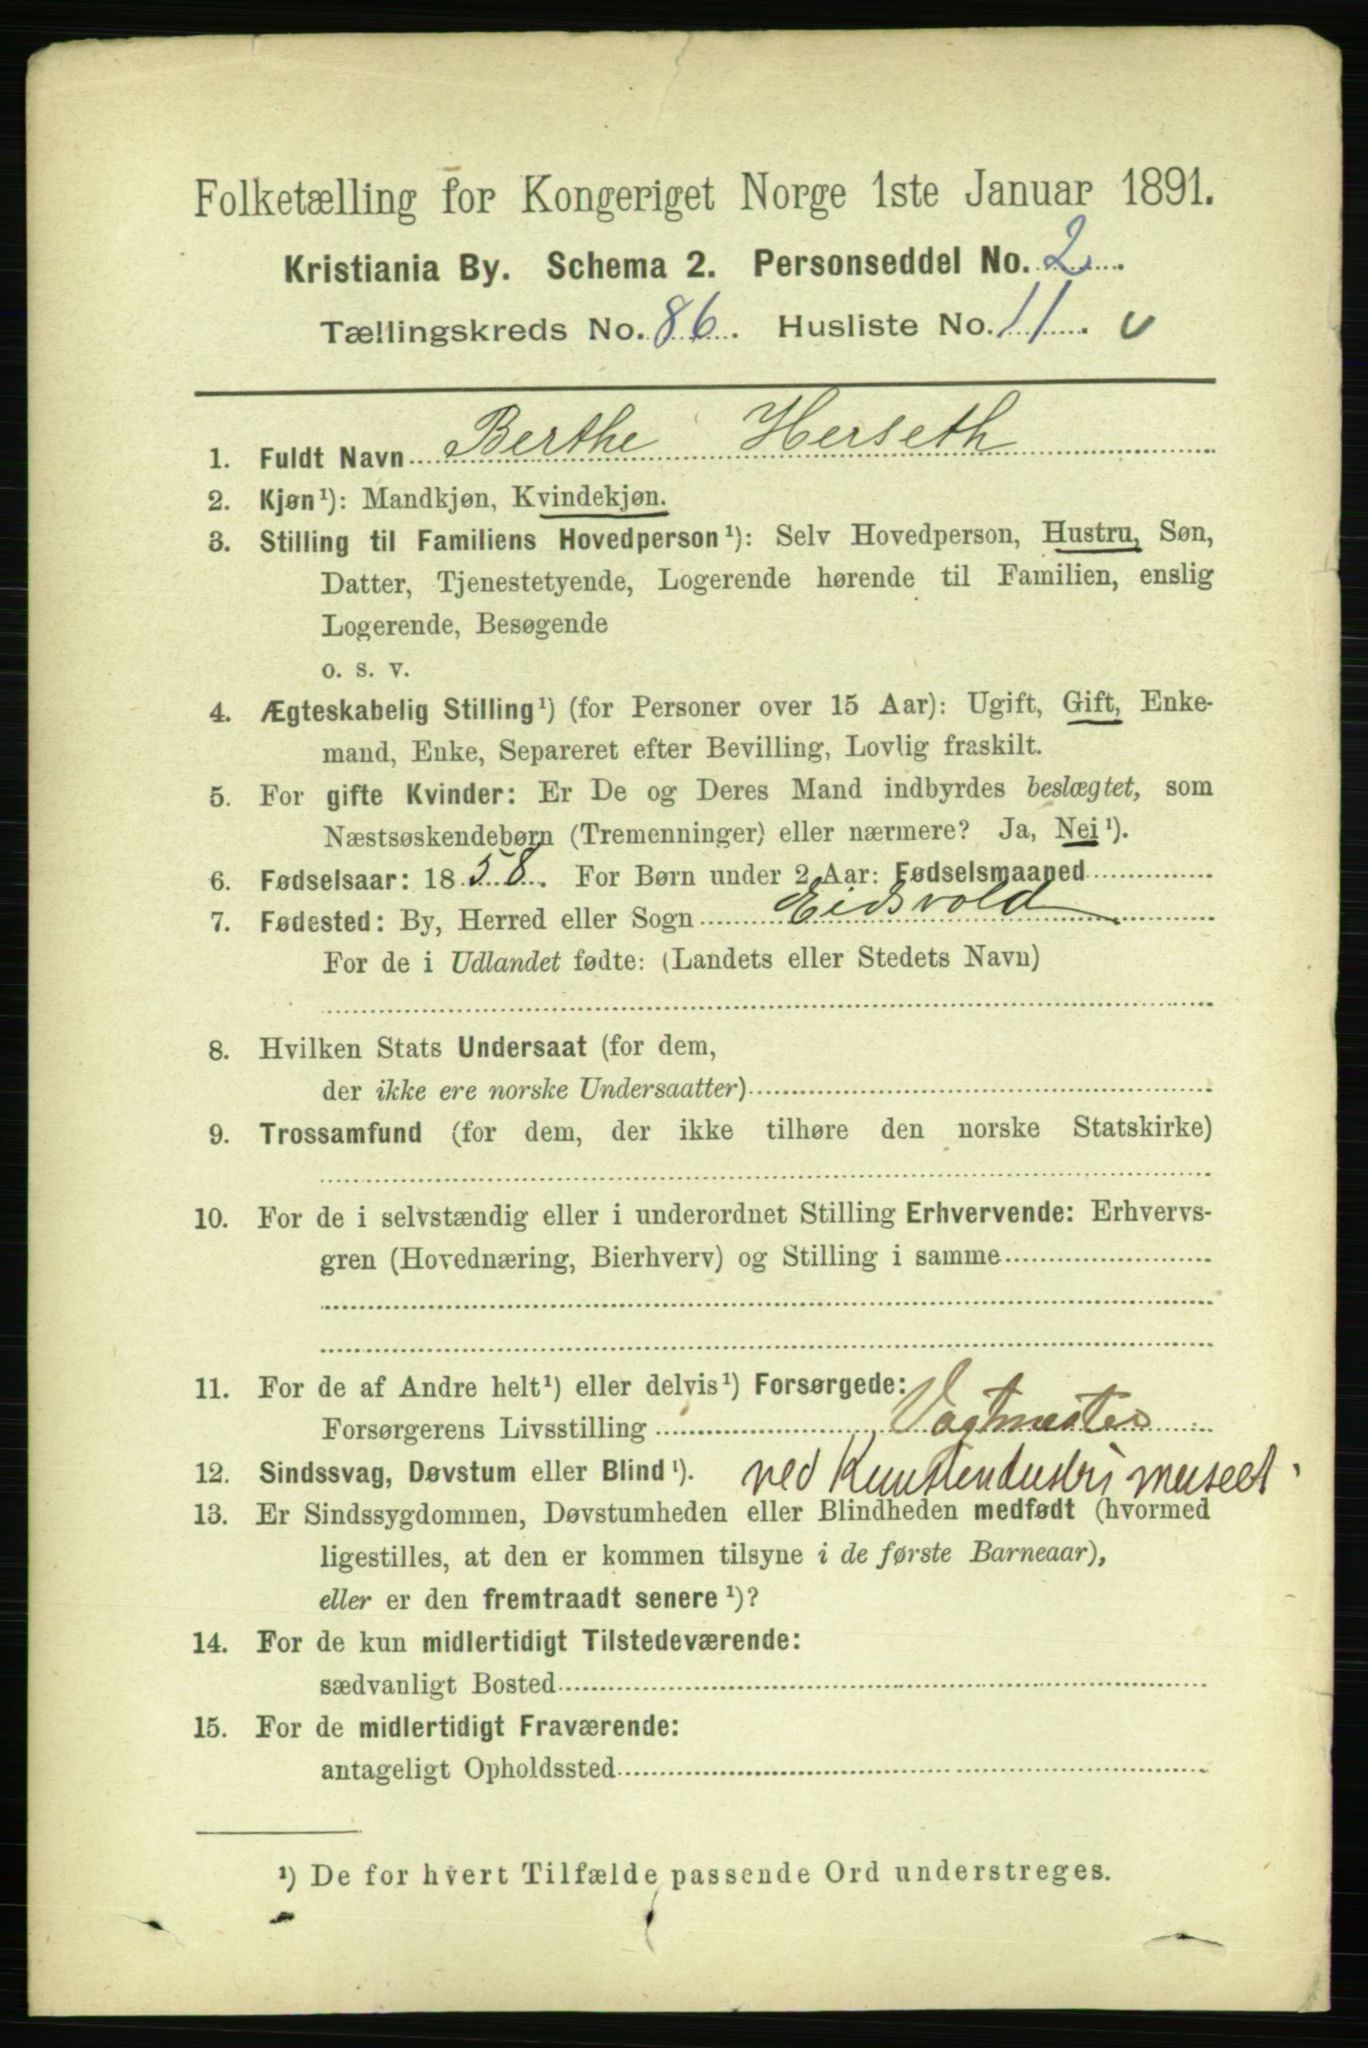 Folketælling for Kongeriget Norge 1ste Januar 1891.
Kristiania By. Schema 2. Personseddel No. 2.
Tællingskreds No. 86. Husliste No. 11.
1. Fuldt Navn Berthe Herseth
2. Kjøn¹): Mandkjøn, Kvindekjøn.
3. Stilling til Familiens Hovedperson¹): Selv Hovedperson, Hustru, Søn,
Datter, Tjenestetyende, Logerende hørende til Familien, enslig
Logerende, Besøgende
o. s. v.
4. Ægteskabelig Stilling¹) (for Personer over 15 Aar): Ugift, Gift, Enke-
mand, Enke, Separeret efter Bevilling, Lovlig fraskilt.
5. For gifte Kvinder: Er De og Deres Mand indbyrdes beslægtet, som
Næstsøskendebørn (Tremenninger) eller nærmere? Ja, Nei¹).
6. Fødselsaar: 1858. For Børn under 2 Aar: Fødselsmaaned
7. Fødested: By, Herred eller Sogn Eidsvold
For de i Udlandet fødte: (Landets eller Stedets Navn)
8. Hvilken Stats Undersaat (for dem,
der ikke ere norske Undersaatter)
9. Trossamfund (for dem, der ikke tilhøre den norske Statskirke)
10. For de i selvstændig eller i underordnet Stilling Erhvervende: Erhvervs-
gren (Hovednæring, Bierhverv) og Stilling i samme
11. For de af Andre helt¹) eller delvis¹) Forsørgede:
Forsørgerens Livsstilling Vagtmester
12. Sindssvag, Døvstum eller Blind¹). ved Kunstindustrimuseet
13. Er Sindssygdommen, Døvstumheden eller Blindheden medfødt (hvormed
ligestilles, at den er kommen tilsyne i de første Barneaar),
eller er den fremtraadt senere¹)?
14. For de kun midlertidigt Tilstedeværende:
sædvanligt Bosted
15. For de midlertidigt Fraværende:
antageligt Opholdssted
¹) De for hvert Tilfælde passende Ord understreges.